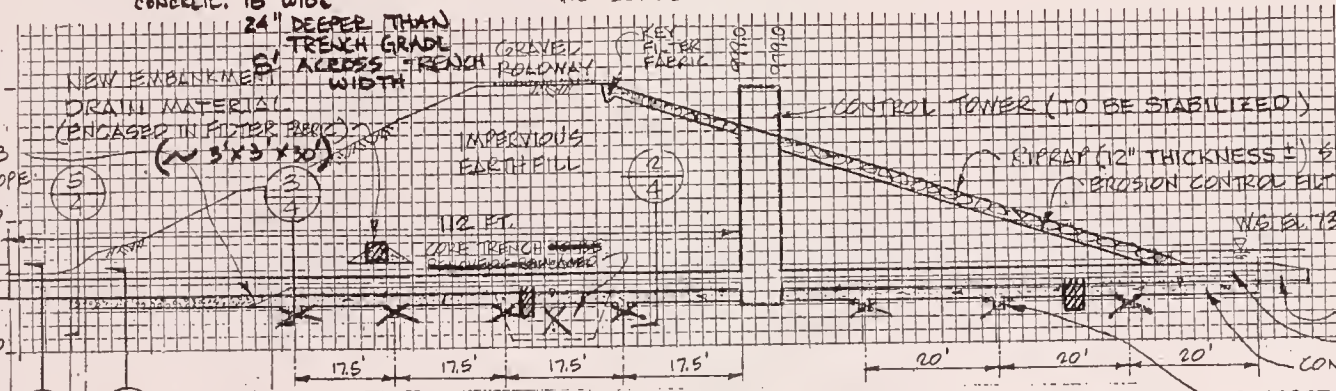 CONCRETE. 18" WIDE
24" DEEPER THAN
TRENCH GRADE
8' ACROSS TRENCH
WIDTH
NEW EMBANKMENT
DRAIN MATERIAL
(ENCASED IN FILTER FABRIC)
(~ 3'X3'X30')
GRAVEL
ROADWAY
KEY
FILTER
FABRIC
CONTROL TOWER (TO BE STABILIZED)
IMPERVIOUS
EARTHFILL
RIPRAP (12" THICKNESS ±)
EROSION CONTROL FILT
W.S. EL. 73
OPE
5
2
3
4
2
4
112 FT.
CORE TRENCH
17.5'
17.5'
17.5'
17.5'
20'
20'
20'
CON